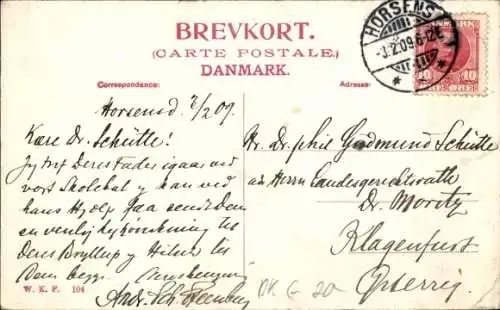 BREVKORT.
(CARTE POSTALE.)
DANMARK.
Correspondance:
Adresse:
HORSENS
-3.2.09.6-12E
DANMARK
10 10
Horsens d. 3/2 09.
Kære Dr. Schütte!
Jeg traf Deres Fader igaar ved
vort Skolebal og kan ved
hans Hjælp faa sendt Dem
en venlig Lykønskning til
Deres Bryllup og Hilsen til
Dem begge.
Andr. Sch. Steenberg
Hr. Dr. phil Gudmund Schütte
an Herrn Landesgerichtsrath
Dr. Moritz
Klagenfurt
Østerrig.
W. K. F. 104
DK G 20